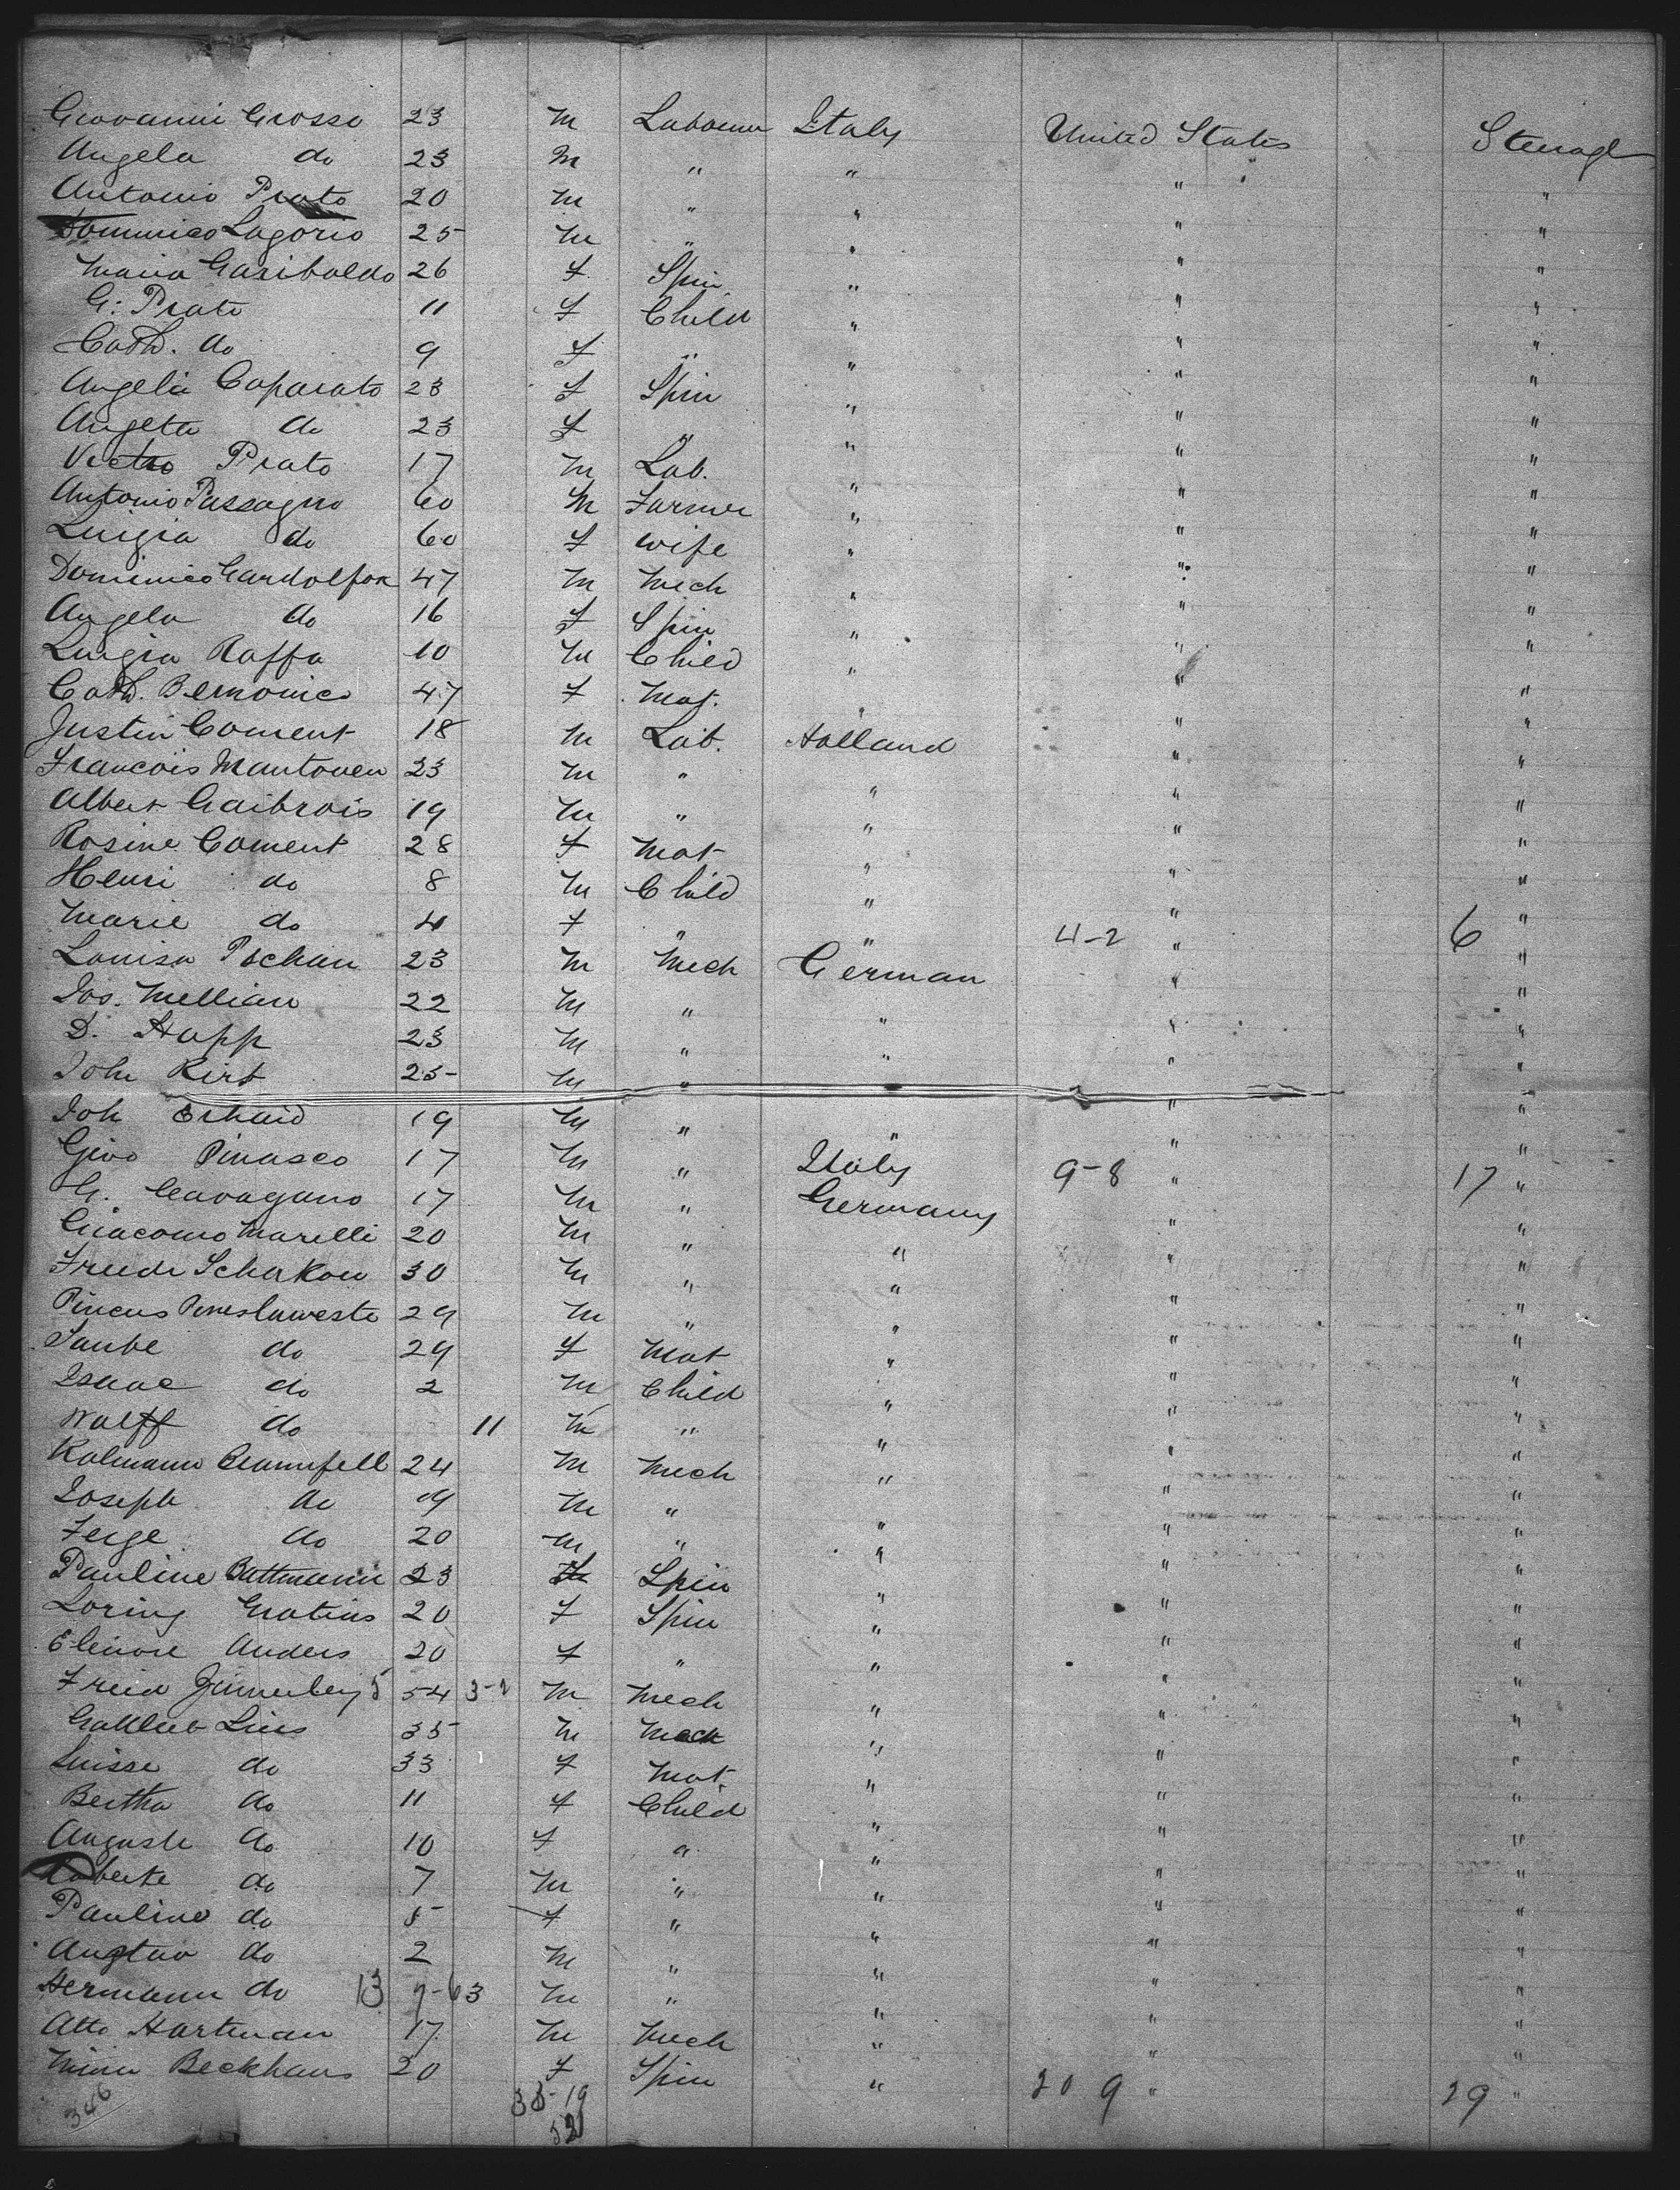 Giovanni Grosso 23 M Labourer Italy United States Steerage
Angela do 23 M " " " "
Antonio Prato 20 M " " " "
Dominico Lagorio 25 M " " " "
Maria Garibaldo 26 F Spin " " "
G. Prato 11 F Child " " "
Cath. do 9 F " " " "
Angelia Caparato 23 F Spin " " "
Angeta do 23 F " " " "
Prato 17 M Lab. " " "
Antonio Passagno 60 M Farmer " " "
Luigia do 60 F wife " " "
Dominico 47 M Mech " " "
Angela do 16 F Spin " " "
Luigia Raffa 10 M Child " " "
Cath. 47 F Mat. " " "
Justin Coment 18 M Lab. Holland " "
Francois Mantouen 23 M " " " "
Albert Gaibrois 19 M " " " "
Rosine Coment 28 F Mat " " "
Henri do 8 M Child " " "
Marie do 4 F " " 4-2 " 6 "
Louisa 23 M Mech German " "
Jos. Mellian 22 M " " " "
D. Happ 23 M " " " "
Joh Kirt 25 M " " " "
Joh Erhard 19 M " " " "
Givo Pinasco 17 M " Italy 9-8 " 17 "
G. Cavagano 17 M " Germany " "
Giacomo Marelli 20 M " " " "
30 M " " " "
Pincus 29 M " " " "
Taube do 29 F Mat " " "
Isaac do 2 M Child " " "
Wolff do 11 M " " " "
Kalmann 24 M Mech " " "
Joseph do 19 M " " " "
Feige do 20 M " " " "
Pauline Battmann 23 Spin " " "
20 F Spin " " "
Elinore Anders 20 F " " " "
54 3-2 M Mech " " "
35 M Mech " " "
Luisse do 33 F Mat. " " "
Bertha do 11 F Child " " "
Auguste do 10 F " " " "
do 7 M " " " "
Pauline do 5 F " " " "
do 2 M " " " "
Hermann do 13 M " " " "
Otto Hartman 17 M Mech " " "
Beckhaus 20 F Spin " 20 9 " 29 "
346